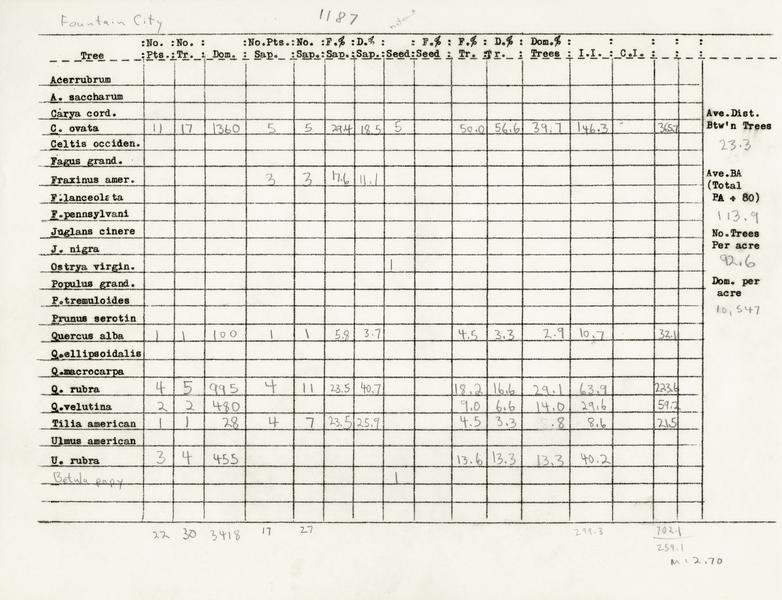 Fountain City 1187
:No. :No. : :No.Pts.:No. :F.% :D.% : : F.% : F.% : D.% : Dom.% : : : : :
Tree :Pts.:Tr. : Dom. : Sap. :Sap.:Sap.:Sap.:Seed:Seed : Tr. :Tr. : Trees : I.I. : C.I. : : :
Acerrubrum
A. saccharum
Carya cord.
C. ovata 11 17 1360 5 5 29.4 18.5 5 50.0 56.6 39.7 146.3 - 365.7
Celtis occiden.
Fagus grand.
Fraxinus amer. 3 3 17.6 11.1
F.lanceolata
F.pennsylvani
Juglans cinere
J. nigra
Ostrya virgin. 1
Populus grand.
P.tremuloides
Prunus serotin
Quercus alba 1 1 100 1 1 5.8 3.7 4.5 3.3 2.9 10.7 32.1
Q.ellipsoidalis
Q.macrocarpa
Q. rubra 4 5 995 4 11 23.5 40.7 18.2 16.6 29.1 63.9 223.6
Q.velutina 2 2 480 9.0 6.6 14.0 29.6 59.2
Tilia american 1 1 28 4 7 23.5 25.9 4.5 3.3 .8 8.6 21.5
Ulmus american
U. rubra 3 4 455 13.6 13.3 13.3 40.2
Betula papy 1
22 30 3418 17 27 299.3 702.1
259.1
M = 2.70
Ave.Dist.
Btw'n Trees
23.3
Ave.BA
(Total
BA ÷ 80)
113.9
No.Trees
Per acre
92.6
Dom. per
acre
10,547